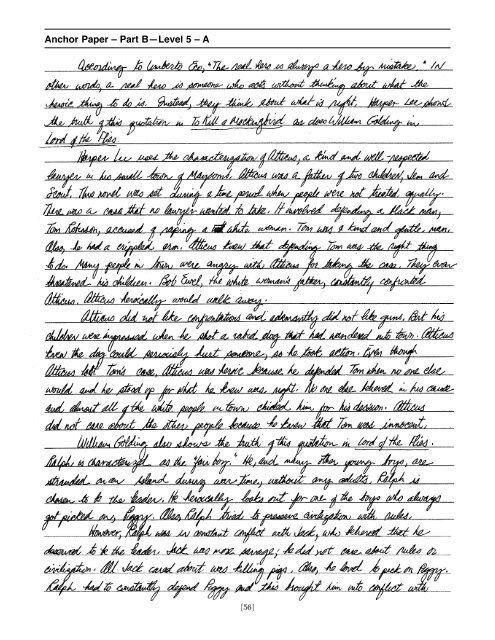 Anchor Paper – Part B—Level 5 – A
According to Umberto Eco, "The real hero is always a hero by mistake." In
other words, a real hero is someone who acts without thinking about what the
heroic thing to do is. Instead, they think about what is right. Harper Lee shows
the truth of this quotation in To Kill a Mockingbird as does William Golding in
Lord of the Flies.
Harper Lee uses the characterization of Atticus, a kind and well-respected
lawyer in his small town of Maycomb. Atticus was a father of two children, Jem and
Scout. The novel was set during a time period when people were not treated equally.
There was a case that no lawyer wanted to take. It involved depending a black man,
Tom Robinson, accused of raping a white woman. Tom was a kind and gentle man.
Also, he had a crippled arm. Atticus knew that depending Tom was the right thing
to do. Many people in town were angry with Atticus for taking the case. They even
threatened his children. Bob Ewel, the white woman's father, constantly confronted
Atticus. Atticus heroically would walk away.
Atticus did not like confrontations and adamantly did not like guns. But his
children were impressed when he shot a rabid dog that had wandered into town. Atticus
knew the dog could seriously hurt someone, so he took action. Even though
Atticus lost Tom's case, Atticus was heroic because he defended Tom when no one else
would and he stood up for what he knew was right. No one else believed in his cause
and almost all of the white people in town chided him for his decision. Atticus
did not care about the other people because he knew that Tom was innocent.
William Golding also shows the truth of this quotation in Lord of the Flies.
Ralph is characterized as the "fair boy." He, and many other young boys, are
stranded on an island during war time, without any adults. Ralph is
chosen to be the leader. He heroically looks out for one of the boys who always
got picked on, Piggy. Also, Ralph tried to preserve civilization with rules.
However, Ralph was in constant conflict with Jack, who believed that he
deserved to be the leader. Jack was more savage; he did not care about rules or
civilization. All Jack cared about was killing pigs. Also, he loved to pick on Piggy.
Ralph had to constantly defend Piggy and this brought him into conflict with
[56]